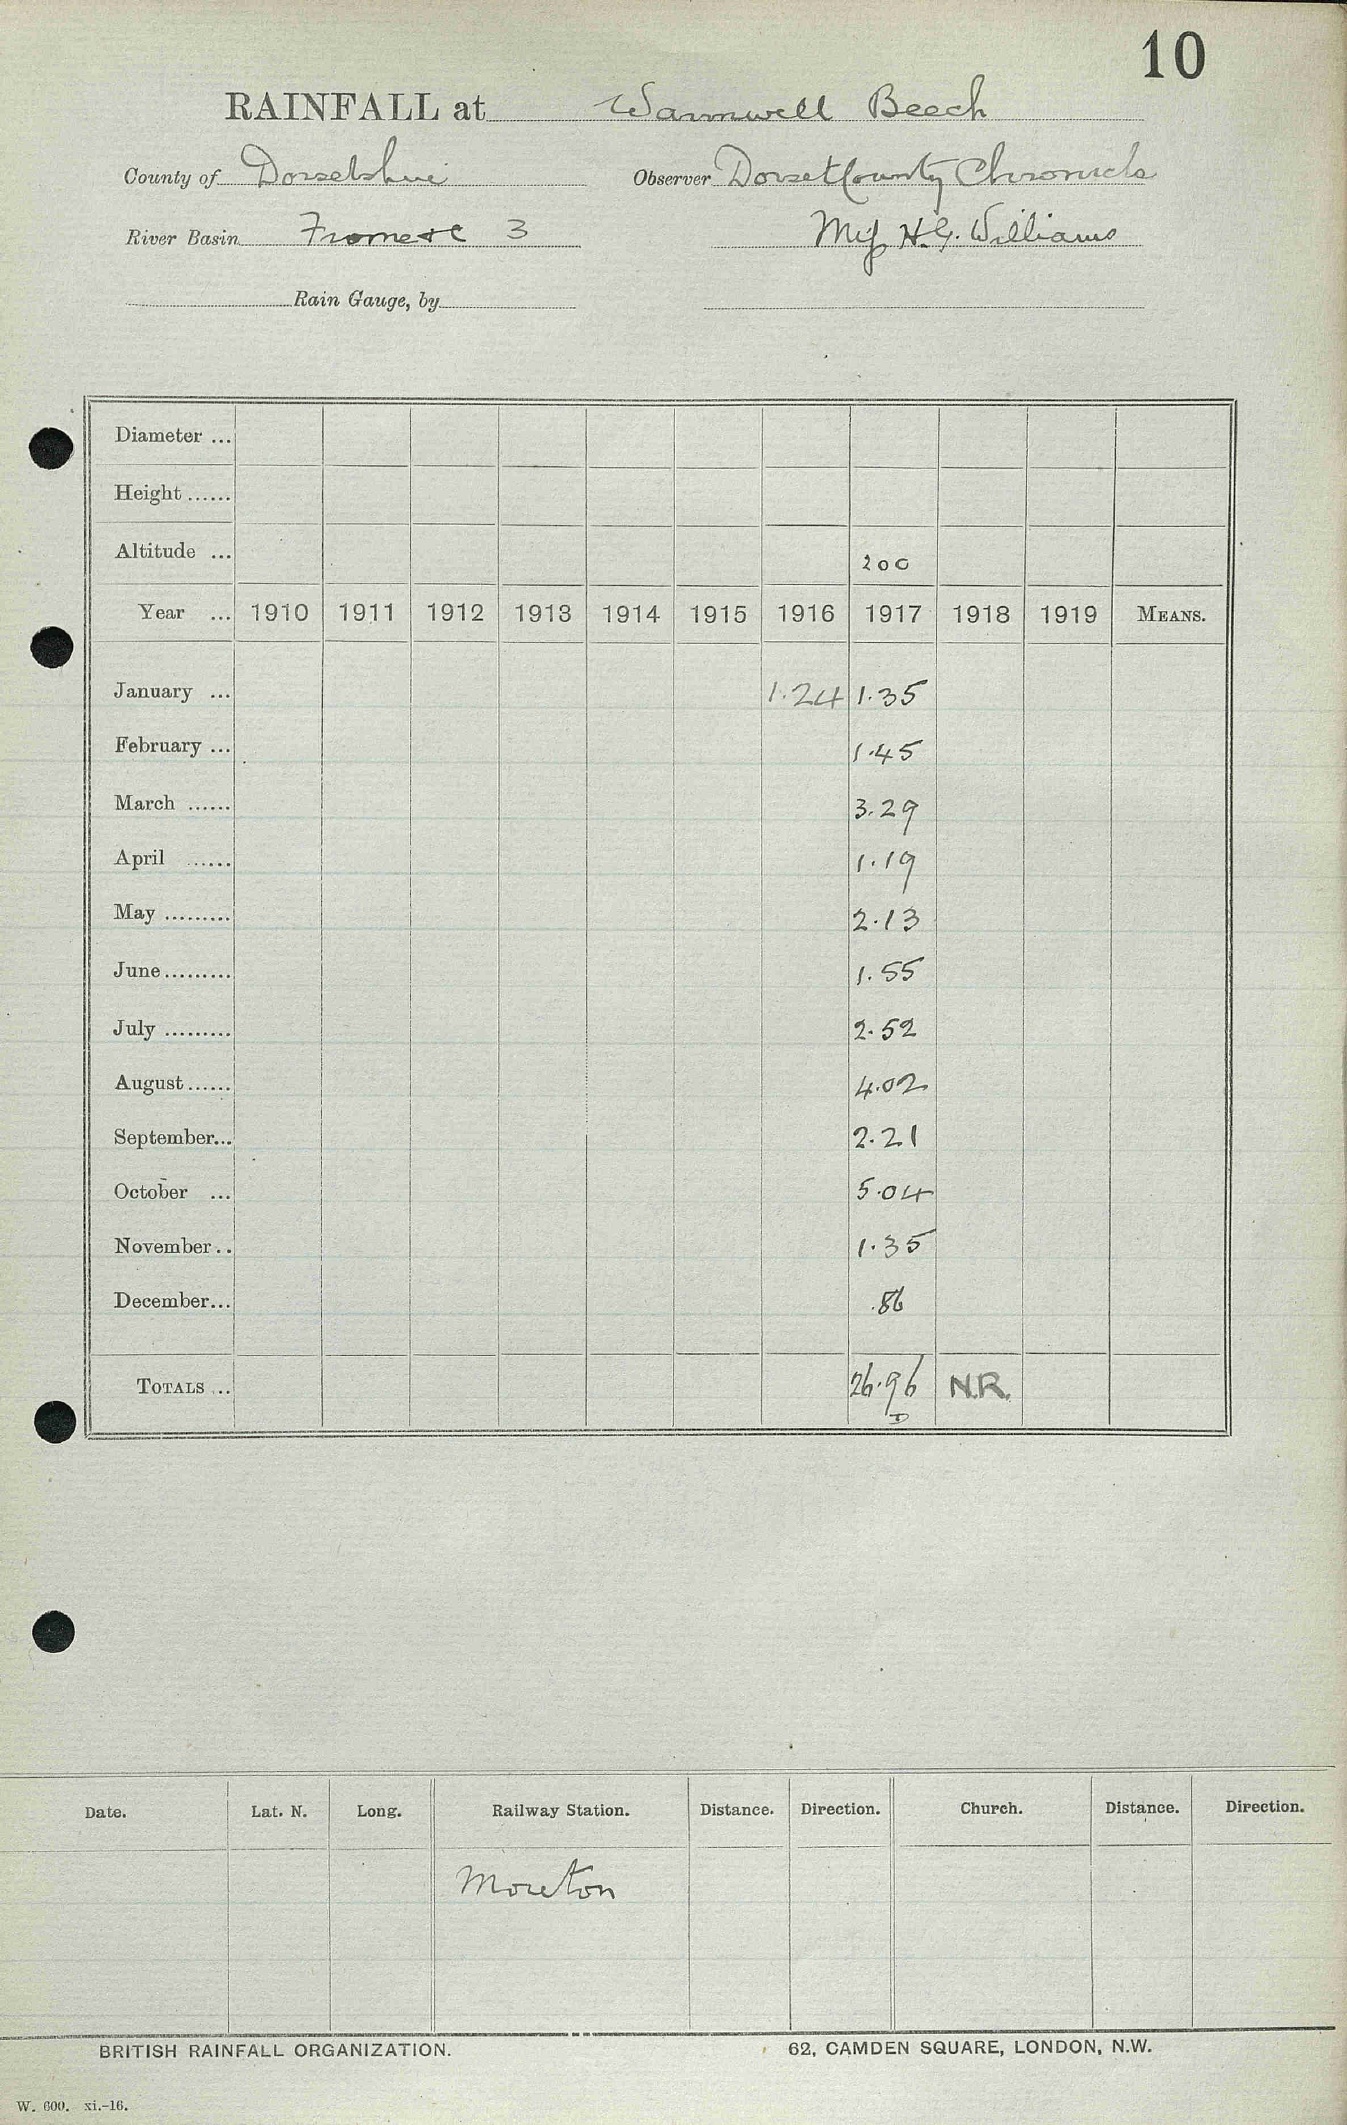 10
RAINFALL at Warmwell Beech
County of Dorsetshire Observer Dorset County Chronicle
River Basin Frome &c 3 Miss H.G. Williams
Rain Gauge, by
Diameter ...
Height ......
Altitude ... 200
Year ... 1910 1911 1912 1913 1914 1915 1916 1917 1918 1919 MEANS.
January ... 1.24 1.35
February ... 1.45
March ...... 3.29
April ...... 1.19
May ......... 2.13
June ......... 1.55
July ......... 2.52
August ...... 4.02
September... 2.21
October ... 5.04
November.. 1.35
December... .86
TOTALS ... 26.96 N.R.
D
Date. Lat. N. Long. Railway Station. Distance. Direction. Church. Distance. Direction.
Moreton
BRITISH RAINFALL ORGANIZATION. 62, CAMDEN SQUARE, LONDON, N.W.
W. 600. xi.-16.